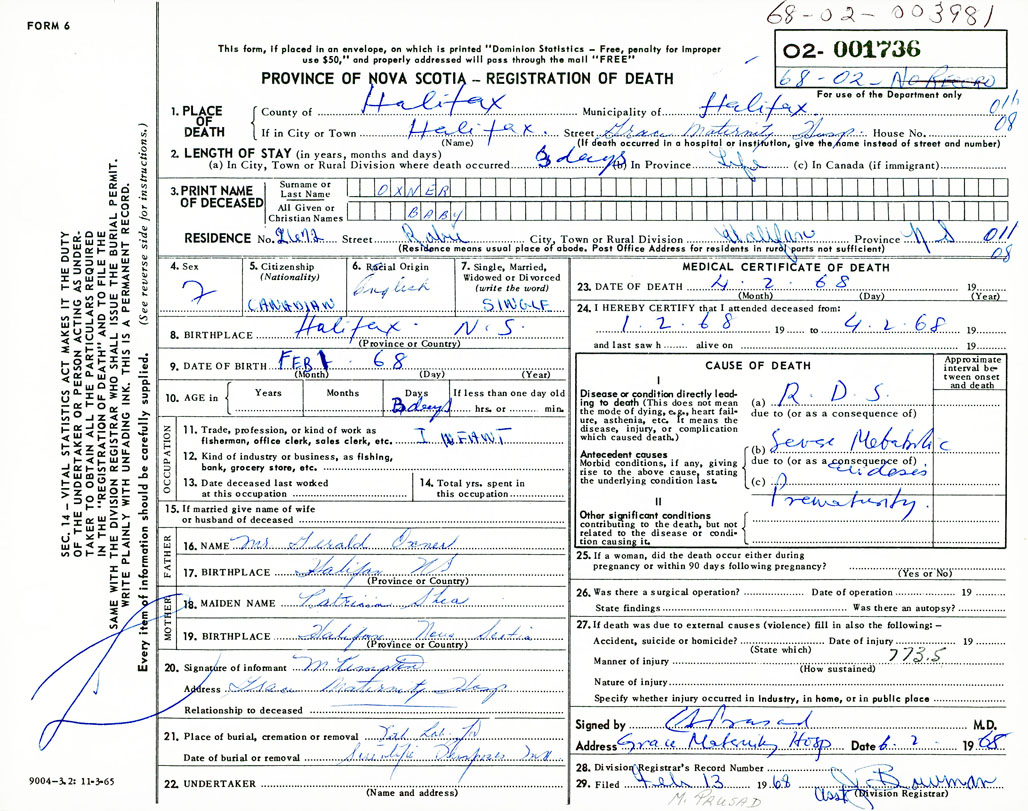 FORM 6
68-02-003981
This form, if placed in an envelope, on which is printed "Dominion Statistics – Free, penalty for improper
use $50," and properly addressed will pass through the mail "FREE"
02- 001736
68-02- No RECORD
For use of the Department only
PROVINCE OF NOVA SCOTIA – REGISTRATION OF DEATH
011
08
1. PLACE OF DEATH
County of Halifax Municipality of Halifax
If in City or Town Halifax. Street Grace Maternity Hosp. House No.
(Name) (If death occurred in a hospital or institution, give the name instead of street and number)
2. LENGTH OF STAY (in years, months and days)
(a) In City, Town or Rural Division where death occurred 3 days (b) In Province Life (c) In Canada (if immigrant)
3. PRINT NAME OF DECEASED
Surname or Last Name OXNER
All Given or Christian Names BABY
RESIDENCE No. 2672 Street City, Town or Rural Division Halifax Province N S
(Residence means usual place of abode. Post Office Address for residents in rural parts not sufficient)
011
08
4. Sex F
5. Citizenship (Nationality) CANADIAN
6. Racial Origin English
7. Single, Married, Widowed or Divorced (write the word) SINGLE
8. BIRTHPLACE Halifax. N.S.
(Province or Country)
9. DATE OF BIRTH FEB 1 . 68
(Month) (Day) (Year)
10. AGE in Years Months Days 3 days If less than one day old hrs. or min.
OCCUPATION
11. Trade, profession, or kind of work as fisherman, office clerk, sales clerk, etc. INFANT
12. Kind of industry or business, as fishing, bank, grocery store, etc.
13. Date deceased last worked at this occupation
14. Total yrs. spent in this occupation
15. If married give name of wife or husband of deceased
FATHER
16. NAME Mr. Gerald Oxner
17. BIRTHPLACE Halifax NS
(Province or Country)
MOTHER
18. MAIDEN NAME Patricia Shea
19. BIRTHPLACE Halifax Nova Scotia
(Province or Country)
20. Signature of informant M Kempton
Address Grace Maternity Hosp
Relationship to deceased
21. Place of burial, cremation or removal
Date of burial or removal Scientific
22. UNDERTAKER
(Name and address)
MEDICAL CERTIFICATE OF DEATH
23. DATE OF DEATH 4. 2. 68 19
(Month) (Day) (Year)
24. I HEREBY CERTIFY that I attended deceased from:
1. 2. 68 19 to 4. 2. 68 19
and last saw h alive on 19
CAUSE OF DEATH
Approximate interval between onset and death
I
Disease or condition directly leading to death (This does not mean the mode of dying, e.g., heart failure, asthenia, etc. It means the disease, injury, or complication which caused death.)
(a) R. D. S.
due to (or as a consequence of)
Antecedent causes
Morbid conditions, if any, giving rise to the above cause, stating the underlying condition last.
(b) Severe Metabolic
due to (or as a consequence of) acidosis
(c) Prematurity.
II
Other significant conditions contributing to the death, but not related to the disease or condition causing it.
25. If a woman, did the death occur either during pregnancy or within 90 days following pregnancy?
(Yes or No)
26. Was there a surgical operation? Date of operation 19
State findings Was there an autopsy?
27. If death was due to external causes (violence) fill in also the following: –
Accident, suicide or homicide? Date of injury 19
(State which) 773.5
Manner of injury
(How sustained)
Nature of injury
Specify whether injury occurred in industry, in home, or in public place
Signed by Prasad M.D.
Address Grace Maternity Hosp Date 6. 2. 1968
28. Division Registrar's Record Number
29. Filed Feb 13 1968 Bowman
Asst (Division Registrar)
M. PRUSAD
SEC. 14 – VITAL STATISTICS ACT MAKES IT THE DUTY
OF THE UNDERTAKER OR PERSON ACTING AS UNDER-
TAKER TO OBTAIN ALL THE PARTICULARS REQUIRED
IN THE "REGISTRATION OF DEATH" AND TO FILE THE
SAME WITH THE DIVISION REGISTRAR WHO SHALL ISSUE THE BURIAL PERMIT.
WRITE PLAINLY WITH UNFADING INK. THIS IS A PERMANENT RECORD.
Every item of information should be carefully supplied. (See reverse side for instructions.)
9004-3.2: 11-3-65